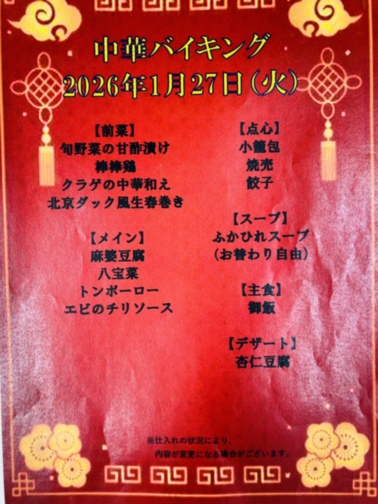 中華バイキング
2026年1月27日(火)
【前菜】
旬野菜の甘酢漬け
棒棒鶏
クラゲの中華和え
北京ダック風生春巻き
【メイン】
麻婆豆腐
八宝菜
トンポーロー
エビのチリソース
【点心】
小籠包
焼売
餃子
【スープ】
ふかひれスープ
(お替わり自由)
【主食】
御飯
【デザート】
杏仁豆腐
※仕入れの状況により、
内容が変更になる場合がございます。